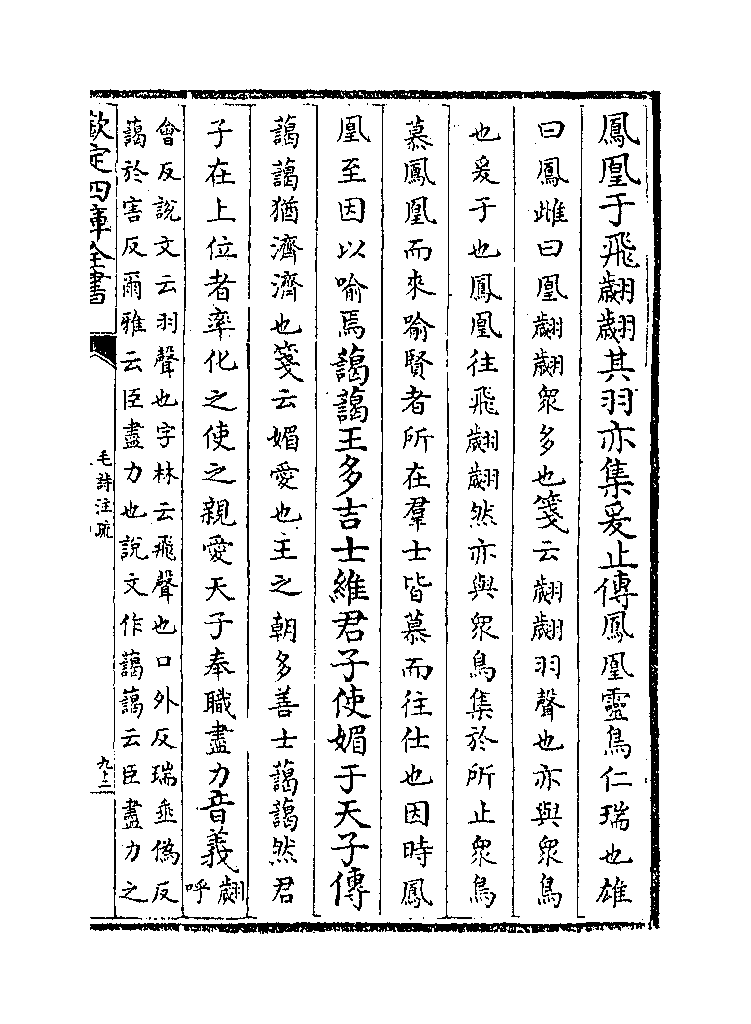 鳳凰于飛翽翽其羽亦集爰止傳鳳凰靈鳥仁瑞也雄
曰鳳雌曰凰翽翽衆多也箋云翽翽羽聲也亦與衆鳥
也爰于也鳳凰往飛翽翽然亦與衆鳥集於所止衆鳥
慕鳳凰而來喻賢者所在羣士皆慕而往仕也因時鳳
凰至因以喻焉藹藹王多吉士維君子使媚于天子傳
藹藹猶濟濟也箋云媚愛也王之朝多善士藹藹然君
子在上位者率化之使之親愛天子奉職盡力音義翽呼
會反説文云羽聲也字林云飛聲也口外反瑞垂偽反
藹於害反爾雅云臣盡力也説文作藹藹云臣盡力之
欽定四庫全書
毛詩注疏
九十二